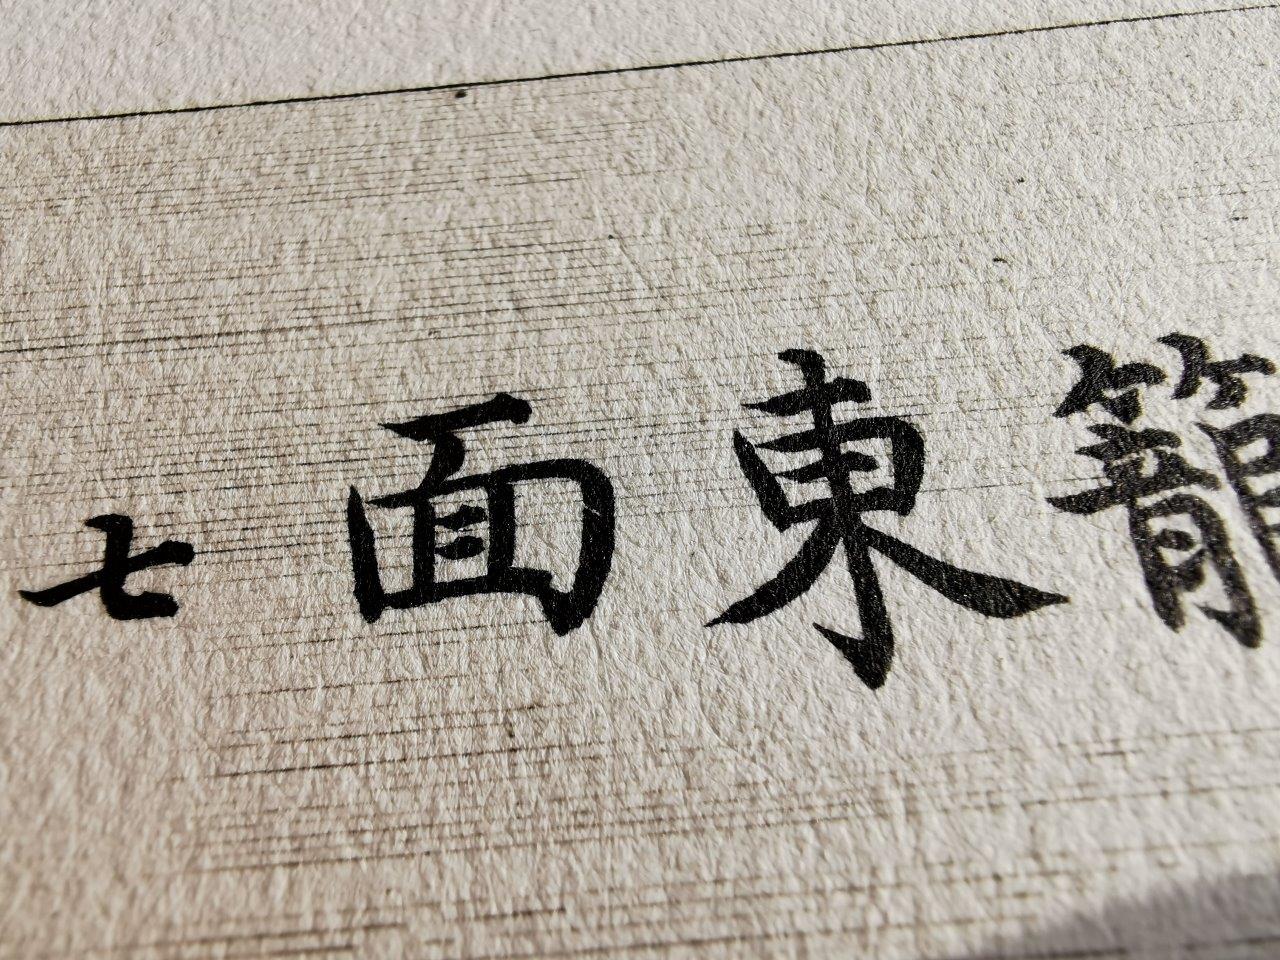 七面東籠